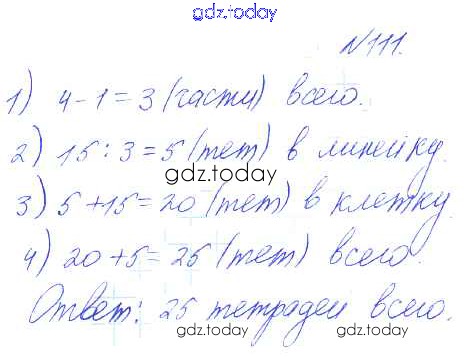 gdz.today
№111.
1) 4-1=3 (части) всего.
2) 15:3=5 (тет) в линейку.
gdz.today
3) 5+15=20 (тет) в клетку.
4) 20+5=25 (тет) всего.
Ответ: 25 тетрадей всего.
gdz.today gdz.today